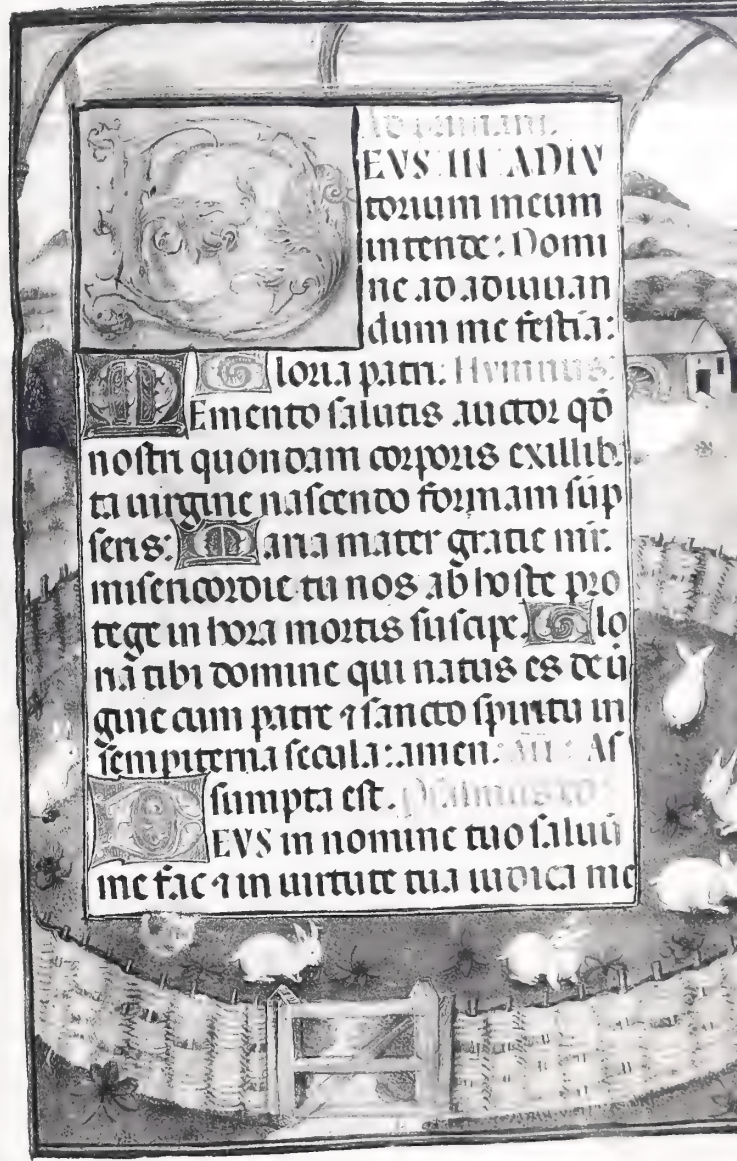 Ad primam.
DEVS IN ADIV
torium meum
intende: Domi
ne ad adiuuan
dum me festia:
Gloria patri: Hymnus:
Memento salutis auctor qd̄
nostri quondam corporis exillib.
ta uirgine nascendo formam sūp
seris: Maria mater gratie mr̄.
misericordie tu nos ab hoste pro
tege in hora mortis suscipe. Glo
ria tibi domine qui natus es de ū
gine cum patre ⁊ sancto spiritu in
sempiterna secula: amen. An̄: Aſ
sumpta est. Psalmus
DEVS in nomine tuo saluū
me fac ⁊ in uirtute tua iudica me